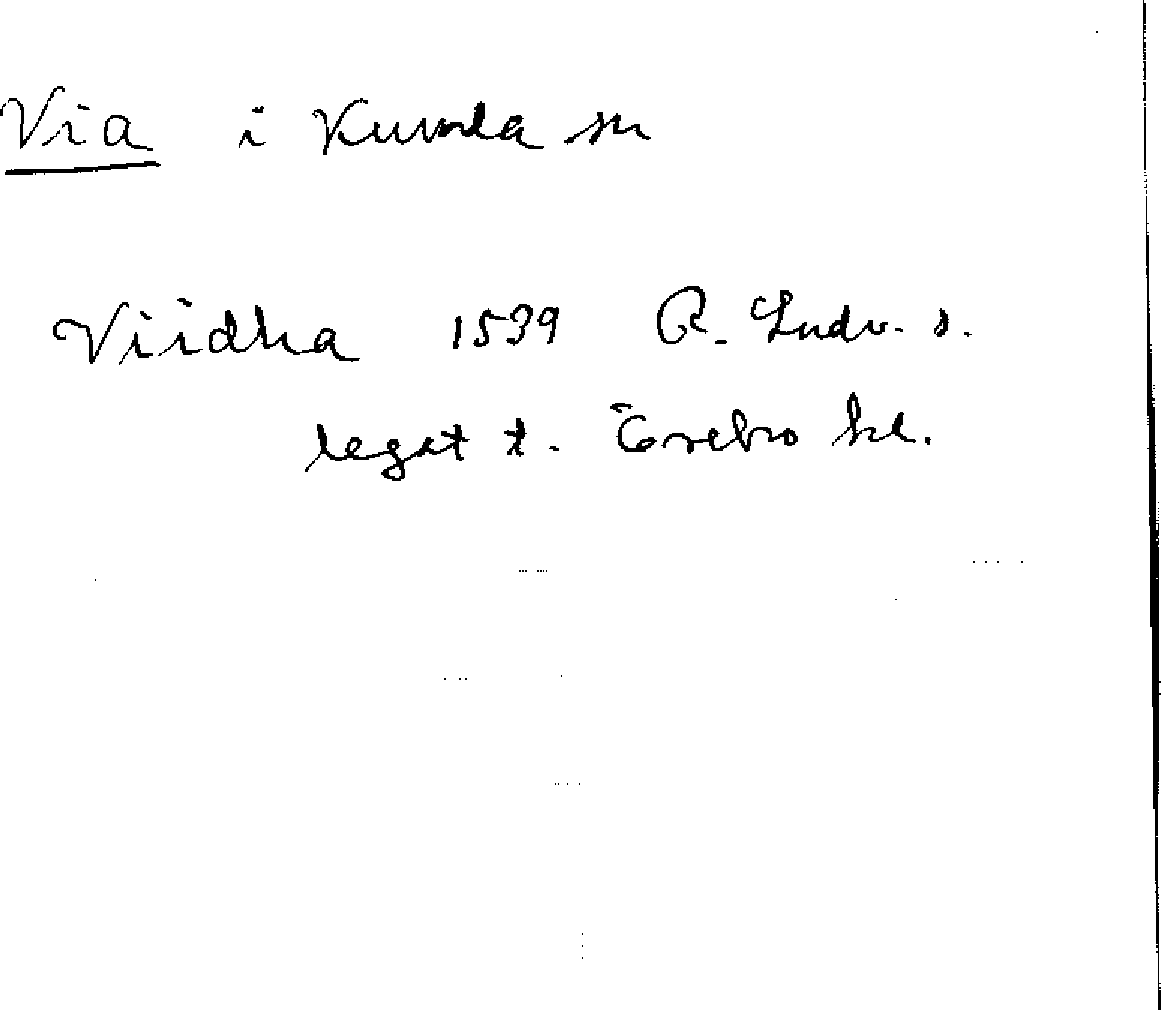 Via i Kumla sn
Viidha 1539 R. Ludv. s.
legat t. Örebro kl.